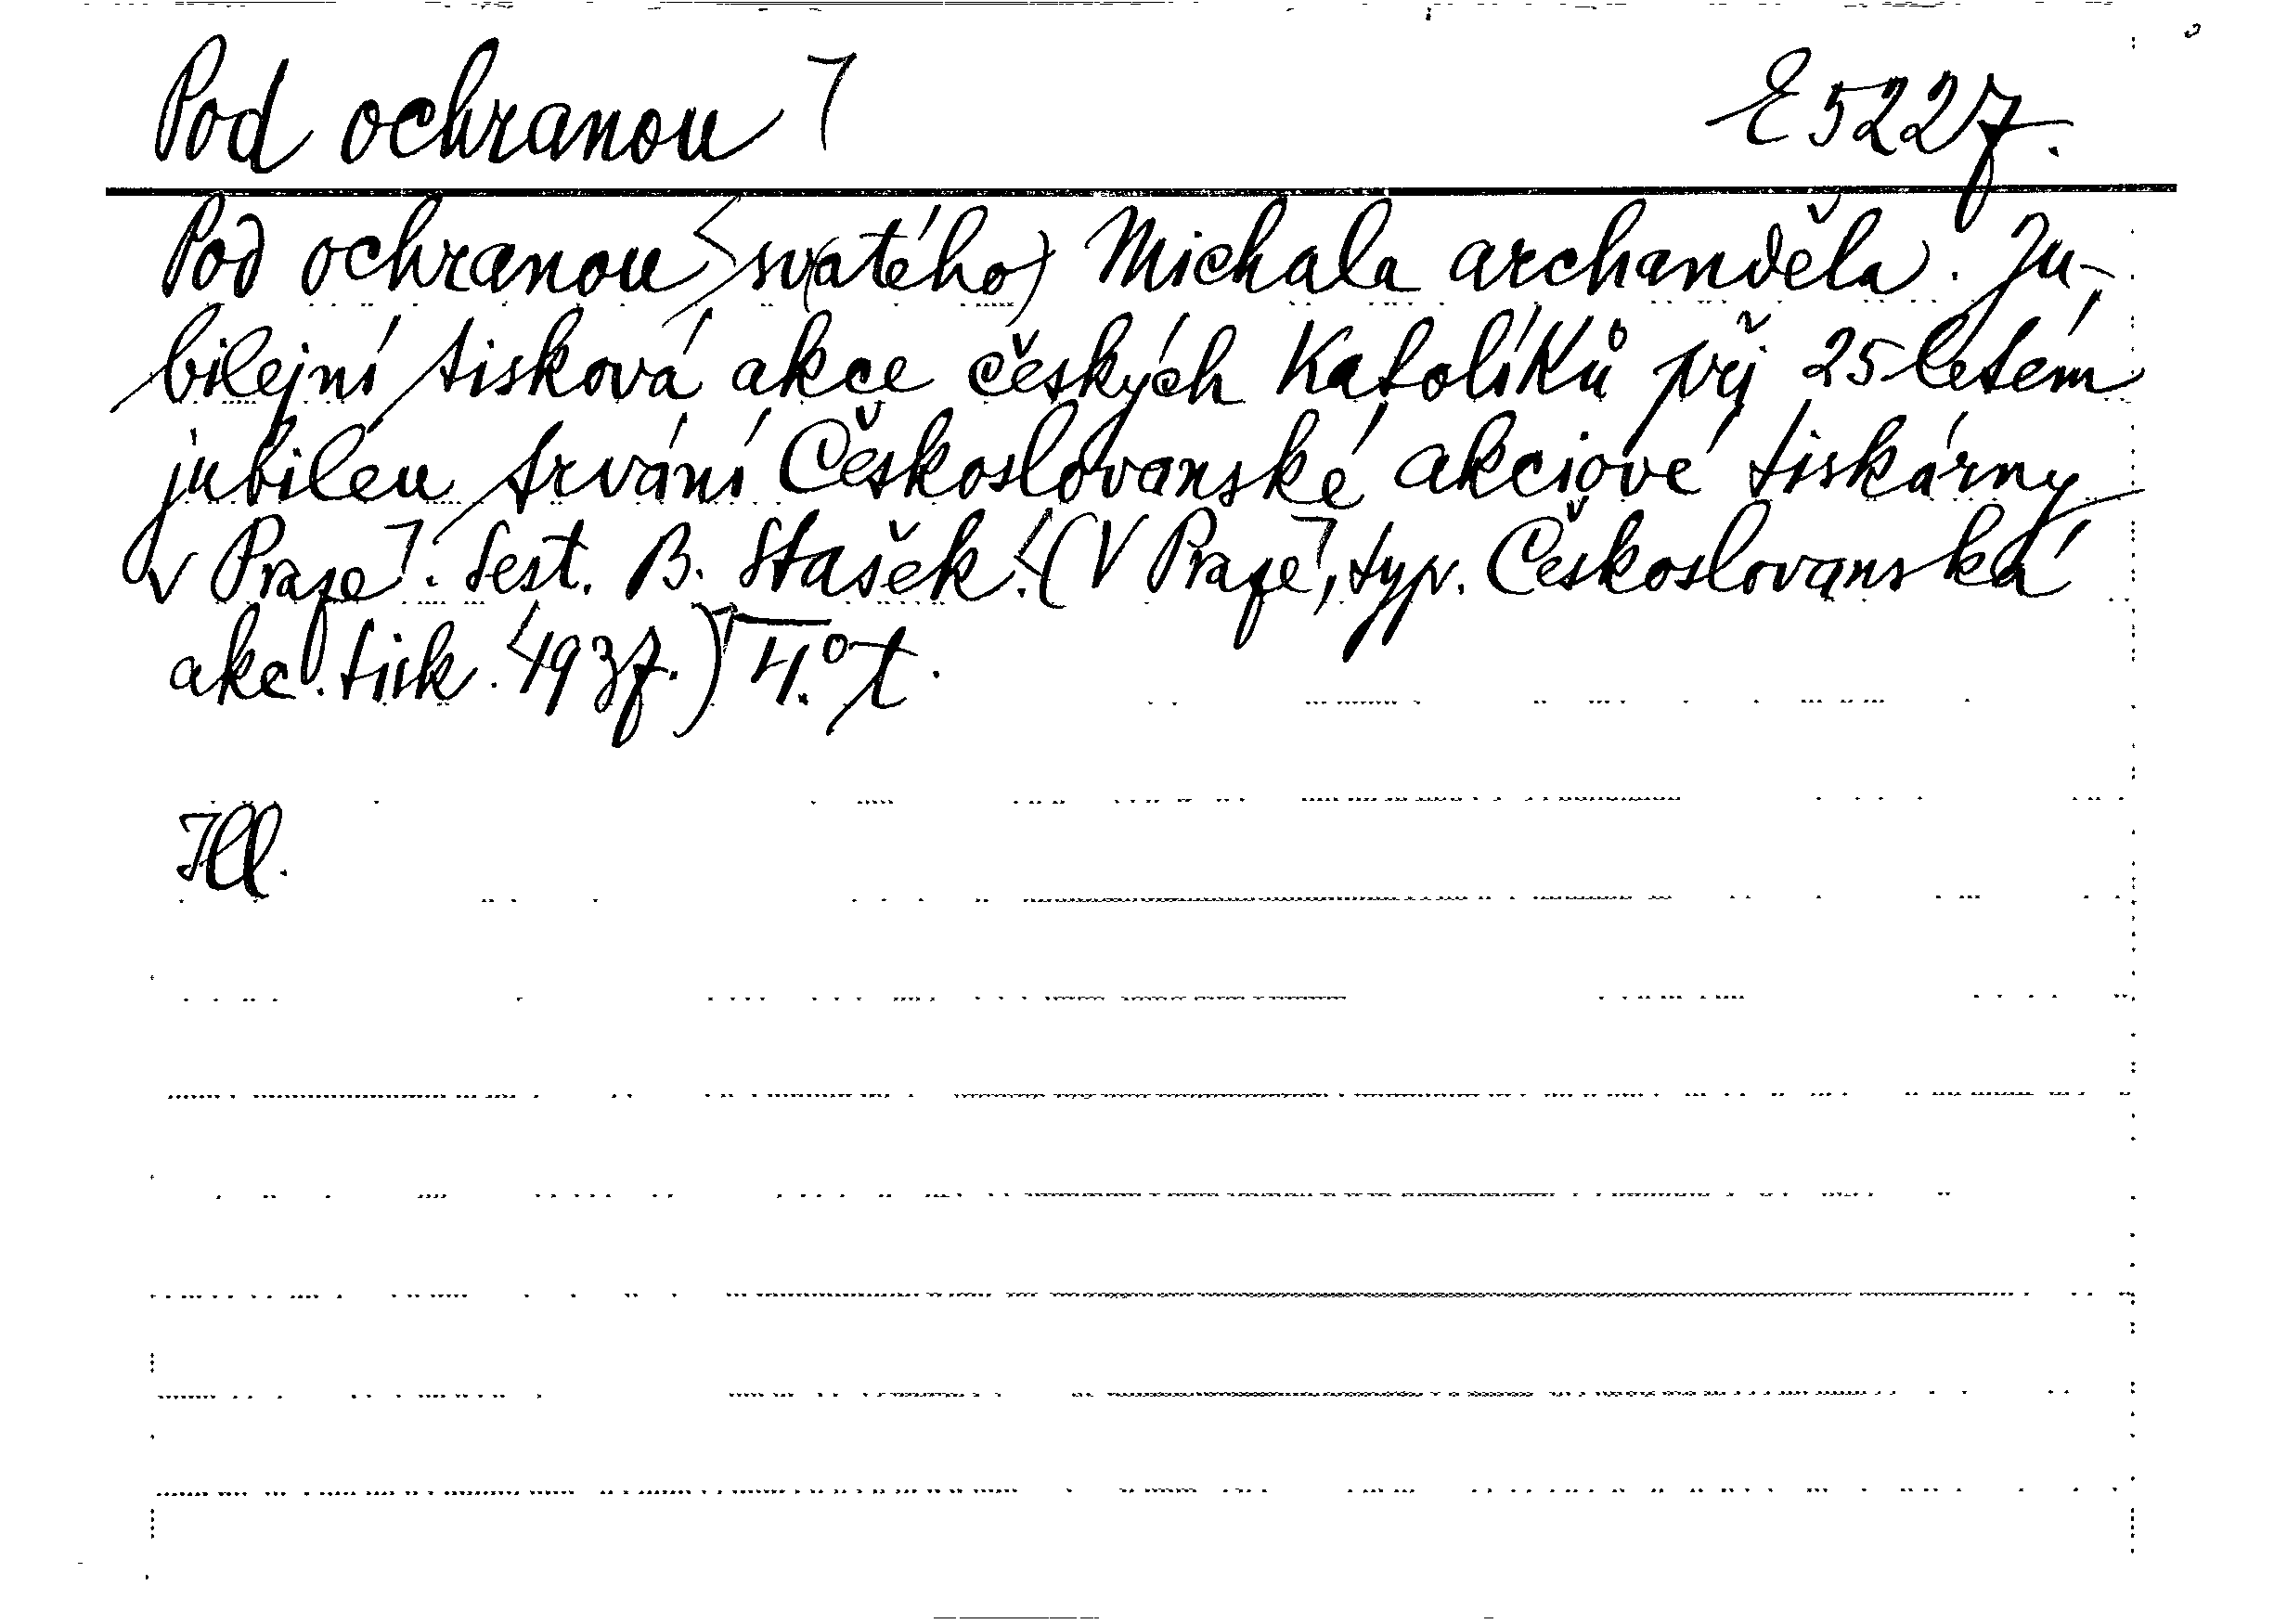 Pod ochranou ꓶ E 5227.
Pod ochranou < sv(atého) Michala archanděla. Ju-
bilejní tisková akce českých katolíků při 25letém
jubileu trvání Českoslovanské akciové tiskárny
v Praze ꓶ. Sest. B. Stašek. (V Praze, typ. Českoslovanská
akc. tisk. 1937.) 4.° t.
Ill.